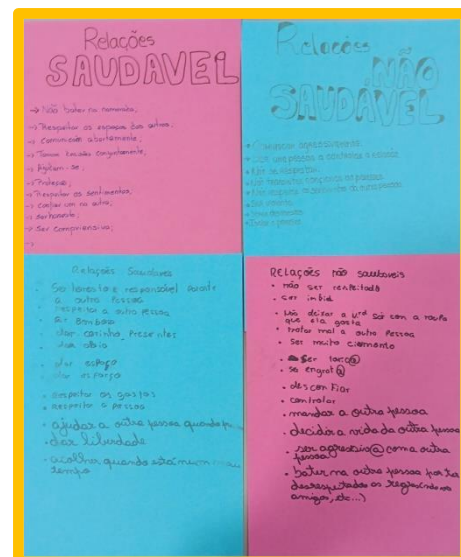 Relações
SAUDAVEL
→ Não bater na namorada;
→ Respeitar os espaços dos outros;
→ Comunicação abertamente;
→ Tomar decisões conjuntamente;
→ Apoiam-se;
→ Proteção;
→ Respeitar os sentimentos,
→ confiar um no outro;
→ ser honesto;
→ Ser compriensivo;
→
Relações
NÃO
SAUDÁVEL
• Comunicar agressivamente.
• uma pessoa a controlar a relação.
• Não se respeitar.
• Não confiança
• Não respeita os sentimentos da outra pessoa.
• Ser violento.
• a pessoa.
Relações Saudaveis
• Ser honesto e responsável perante
a outra Pessoa
• respeitar a outra pessoa
• dar carinho, Presentes
• dar apoio
• dar espaço
• dar esforço
• respeitar os gostos
• Respeitar a pessoa
• ajudar a outra pessoa quando
• dar liberdade
• acolher quando está num mau
tempo
Relações não saudaveis
• não ser respeitado
• ser infiel
• Não deixar a sair com a roupa
que ela gosta
• tratar mal a outra Pessoa
• Ser muito ciomento
• desconfiar
• controlar
• mandar a outra pessoa
• decidir a vida da outra pessoa
• ser agressiv@ com a outra
pessoa
• bater na outra pessoa por ter
desrespeitado as regras
amigos, etc...)